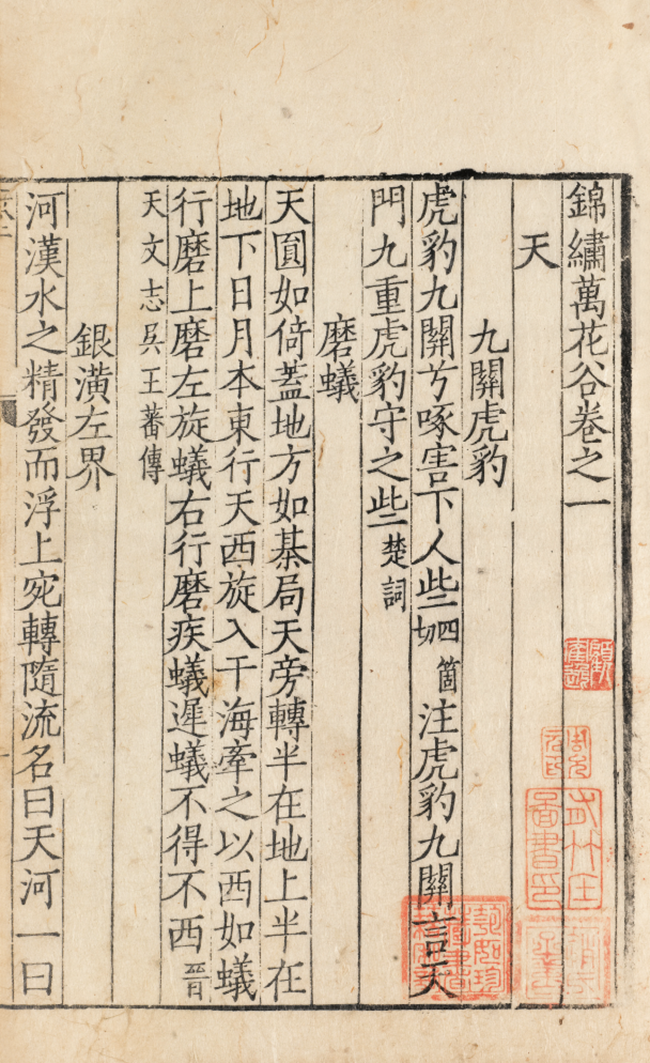 錦繡萬花谷卷之一
天
九關虎豹
虎豹九關兮啄害下人些四箇切注虎豹九關言天
門九重虎豹守之些楚詞
磨蟻
天圎如倚蓋地方如棊局天旁轉半在地上半在
地下日月本東行天西旋入干海牽之以西如蟻
行磨上磨左旋蟻右行磨疾蟻遲蟻不得不西晉
天文志吳王蕃傳
銀潢左界
河漢水之精發而浮上宛轉隨流名曰天河一曰